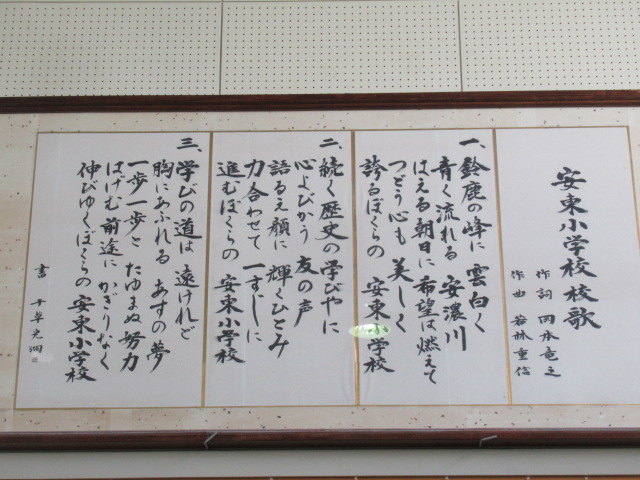 安東小学校校歌
作詞 岡本竜之
作曲 若林重信
一、鈴鹿の峰に 雲白く
青く流れる 安濃川
はえる朝日に 希望は燃えて
つどう心も 美しく
誇るぼくらの 安東小学校
二、続く歴史の 学びやに
心よびかう 友の声
語るえ顔に 輝くひとみ
力合わせて 一すじに
進むぼくらの 安東小学校
三、学びの道は 遠けれど
胸にあふれる あすの夢
一歩一歩と たゆまぬ努力
はげむ前途に かぎりなく
伸びゆくぼくらの 安東小学校
書